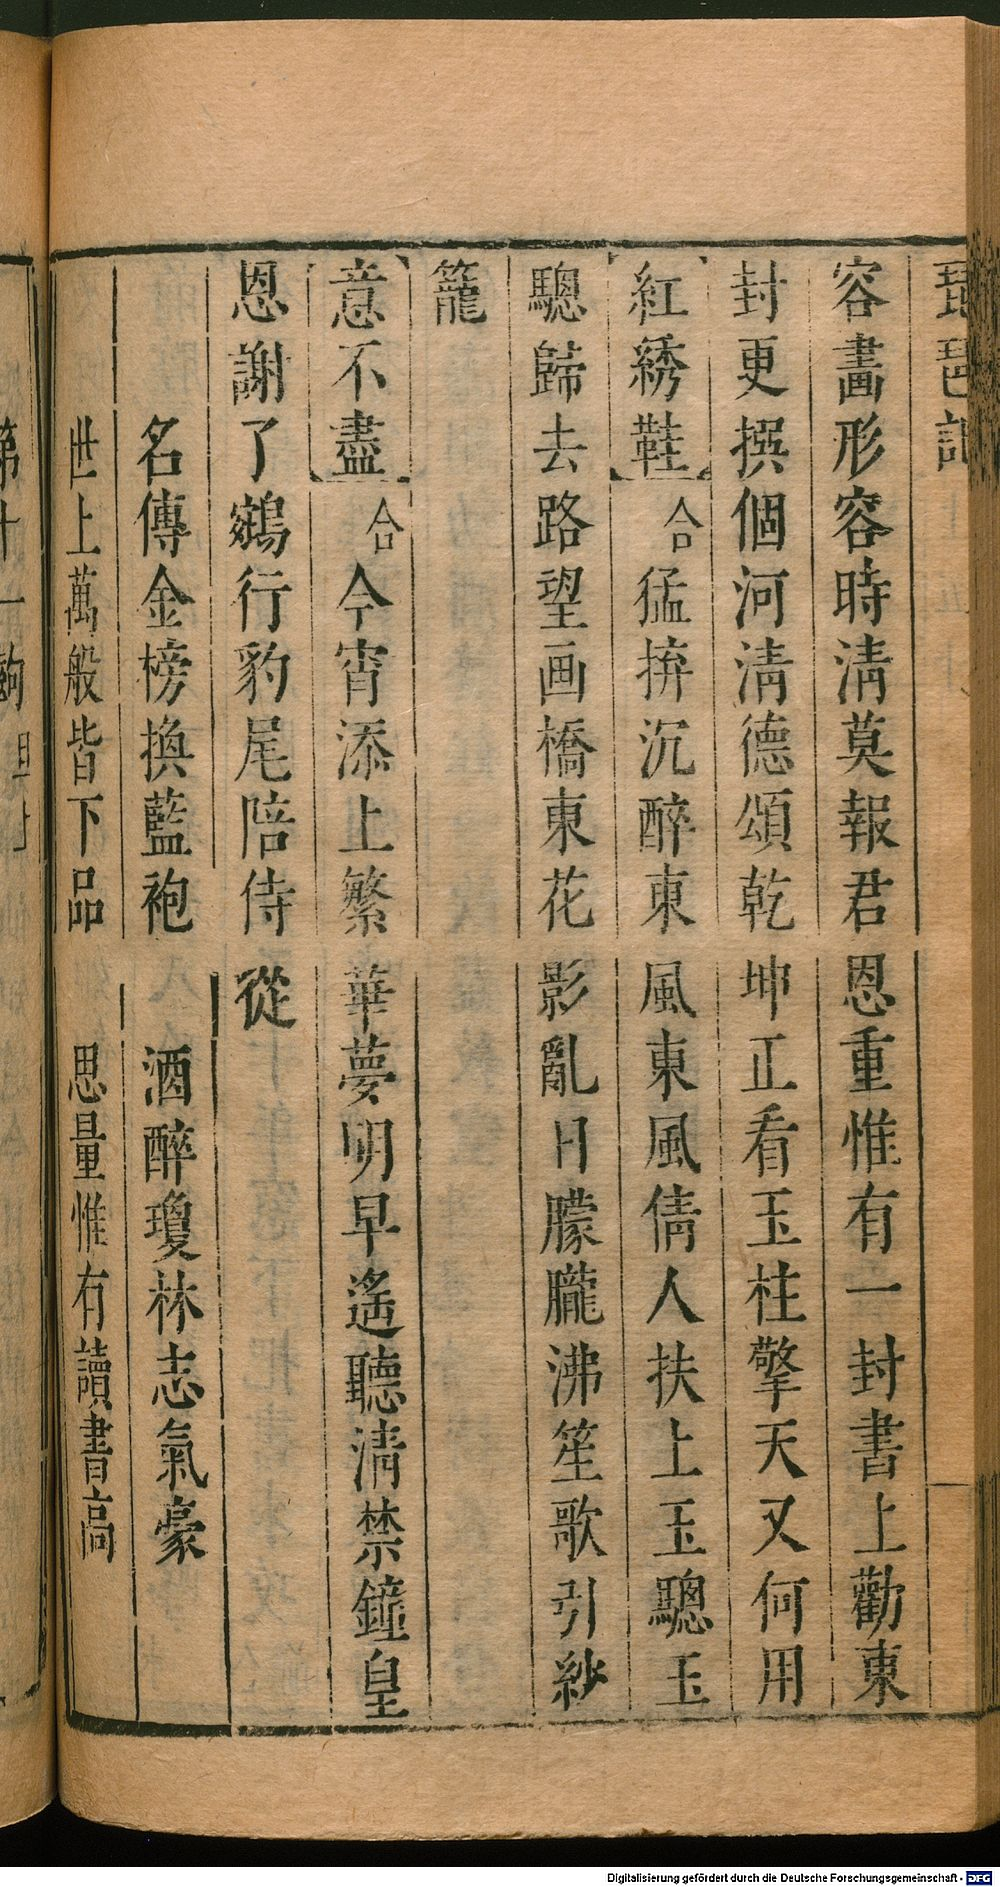 琵琶記
容畫形容時清莫報君恩重惟有一封書上勸東
封更撰個河清德頌乾坤正看玉柱擎天又何用
紅綉鞋 合 猛拚沉醉東風東風倩人扶上玉驄玉
驄歸去路望画橋東花影亂日朦朧沸笙歌引紗
籠
意不盡 合 今宵添上繁華夢明早遙聽清禁鐘皇
恩謝了鵷行豹尾陪侍從
名傳金榜換藍袍 酒醉瓊林志氣豪
世上萬般皆下品 思量惟有讀書高
第十一齣
Digitalisierung gefördert durch die Deutsche Forschungsgemeinschaft - DFG